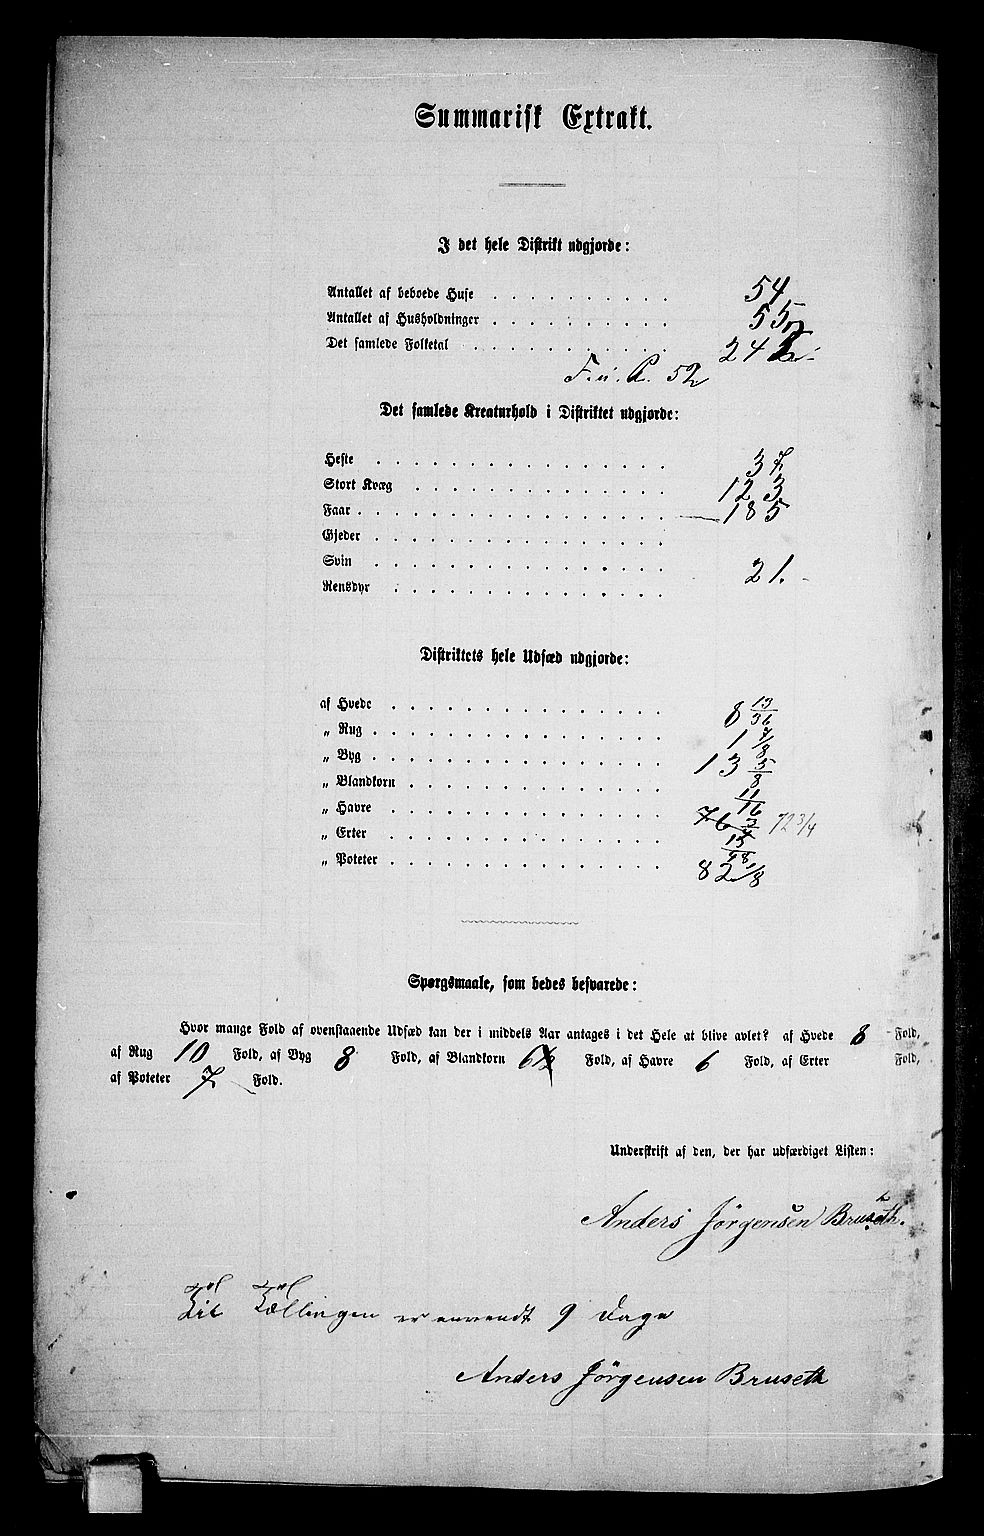 Summarisk Extrakt.
I det hele Distrikt udgjorde:
Antallet af beboede Huse . . . . . . . . 54
Antallet af Husholdninger . . . . . . . . 55
Det samlede Folketal . . . . . . . . 242
F. u. P. 52
Det samlede Kreaturhold i Distriktet udgjorde:
Heste . . . . . . . . . . . . 37
Stort Kvæg . . . . . . . . . . . 123
Faar . . . . . . . . . . . . . 185
Gjeder . . . . . . . . . . . .
Svin . . . . . . . . . . . . 21.
Rensdyr . . . . . . . . . . . .
Distriktets hele Udsæd udgjorde:
af Hvede . . . . . . . . . . . . 8 13/36
„ Rug . . . . . . . . . . . . 1 7/8
„ Byg . . . . . . . . . . . . 13 5/8
„ Blandkorn . . . . . . . . . . . 11/16
„ Havre . . . . . . . . . . . . 76 3/4 72 3/4
„ Erter . . . . . . . . . . . . 15/48
„ Poteter . . . . . . . . . . . . 82 1/8
Spørgsmaale, som bedes besvarede:
Hvor mange Fold af ovenstaaende Udsæd kan der i middels Aar antages i det Hele at blive avlet? af Hvede 8 Fold,
af Rug 10 Fold, af Byg 8 Fold, af Blandkorn 6½ Fold, af Havre 6 Fold, af Erter Fold,
af Poteter 7 Fold.
Underskrift af den, der har udfærdiget Listen:
Anders Jörgensen Bruseth.
Til Tællingen er anvendt 9 Dage
Anders Jörgensen Bruseth